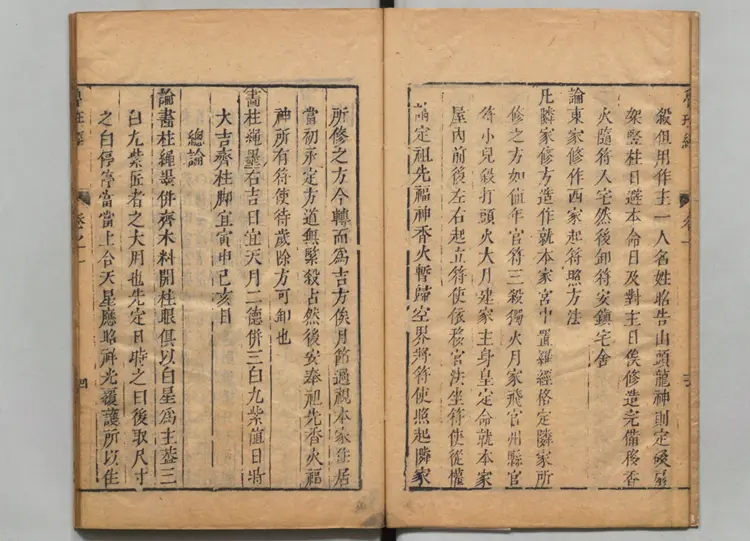 魯班經 卷一
殺俱用作主一人名姓昭告山頭龍神則定磉扇
架豎柱日避本命日及對主日俟修造完備移香
火隨符入宅然後卸符安鎮宅舍
論東家修作西家起符照方法
凡隣家修方造作就本家宮中置羅經格定隣家所
修之方如值年官符三殺獨火月家飛官州縣官
符小兒殺打頭火大月建家主身皇定命就本家
屋內前後左右起立符使依移宮法坐符使從權
請定祖先福神香火暫歸空界將符使照起隣家
所修之方令轉而爲吉方俟月節過視本家住居
當初永定方道無緊殺占然後安奉祖先香火福
神所有符使待歲除方可卸也
畵柱繩墨右吉日宜天月二德併三白九紫值日時
大吉齊柱脚宜寅申巳亥日
總論
論畵柱繩墨併齊木料開柱眼俱以白星爲主盖三
白九紫匠者之大用也先定日時之白後取尺寸
之白停停當當上合天星應昭祥光覆護所以住
魯班經 卷之一 四